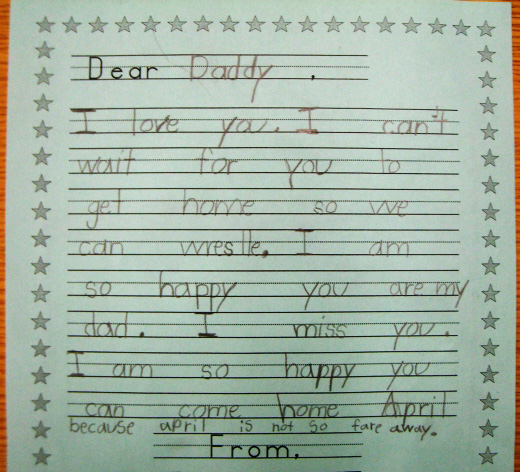 Dear Daddy ,
I love you. I can't
wait for you to
get home so we
can wrestle. I am
so happy you are my
dad. I miss you.
I am so happy you
can come home April
because april is not so fare away.
From,